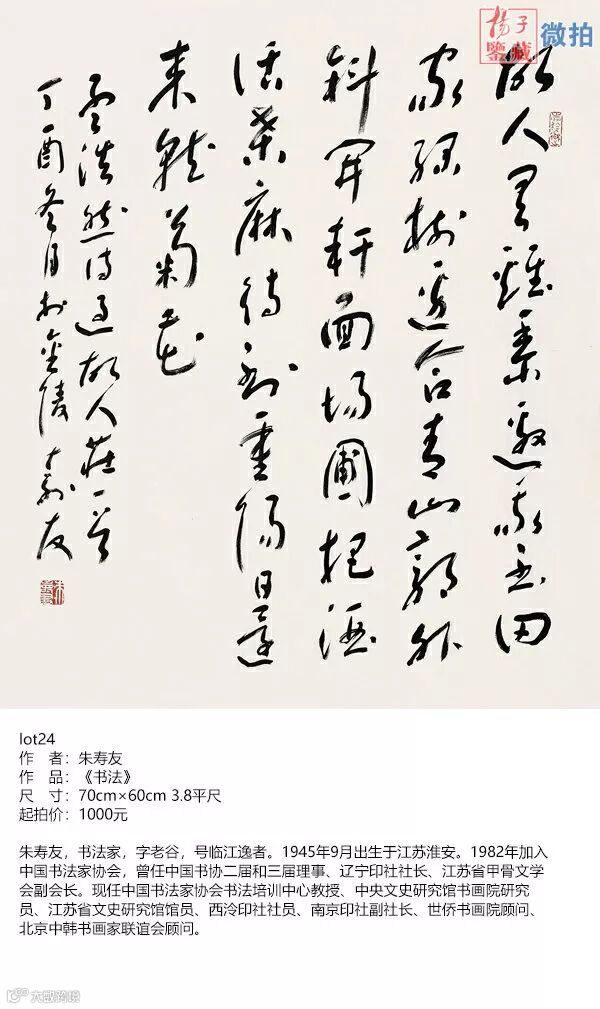 揚子
鑒藏
微拍
故人具雞黍邀我至田
家綠樹邊合青山郭外
斜開軒面場圃把酒
話桑麻待到重陽日還
來就菊花
孟浩然詩過故人莊一首
丁酉冬月於金陵壽友
lot24
作 者：朱寿友
作 品：《书法》
尺 寸：70cm×60cm 3.8平尺
起拍价：1000元
朱寿友，书法家，字老谷，号临江逸者。1945年9月出生于江苏淮安。1982年加入
中国书法家协会，曾任中国书协二届和三届理事、辽宁印社社长、江苏省甲骨文学
会副会长。现任中国书法家协会书法培训中心教授、中央文史研究馆书画院研究
员、江苏省文史研究馆馆员、西泠印社社员、南京印社副社长、世侨书画院顾问、
北京中韩书画家联谊会顾问。
大数跨境